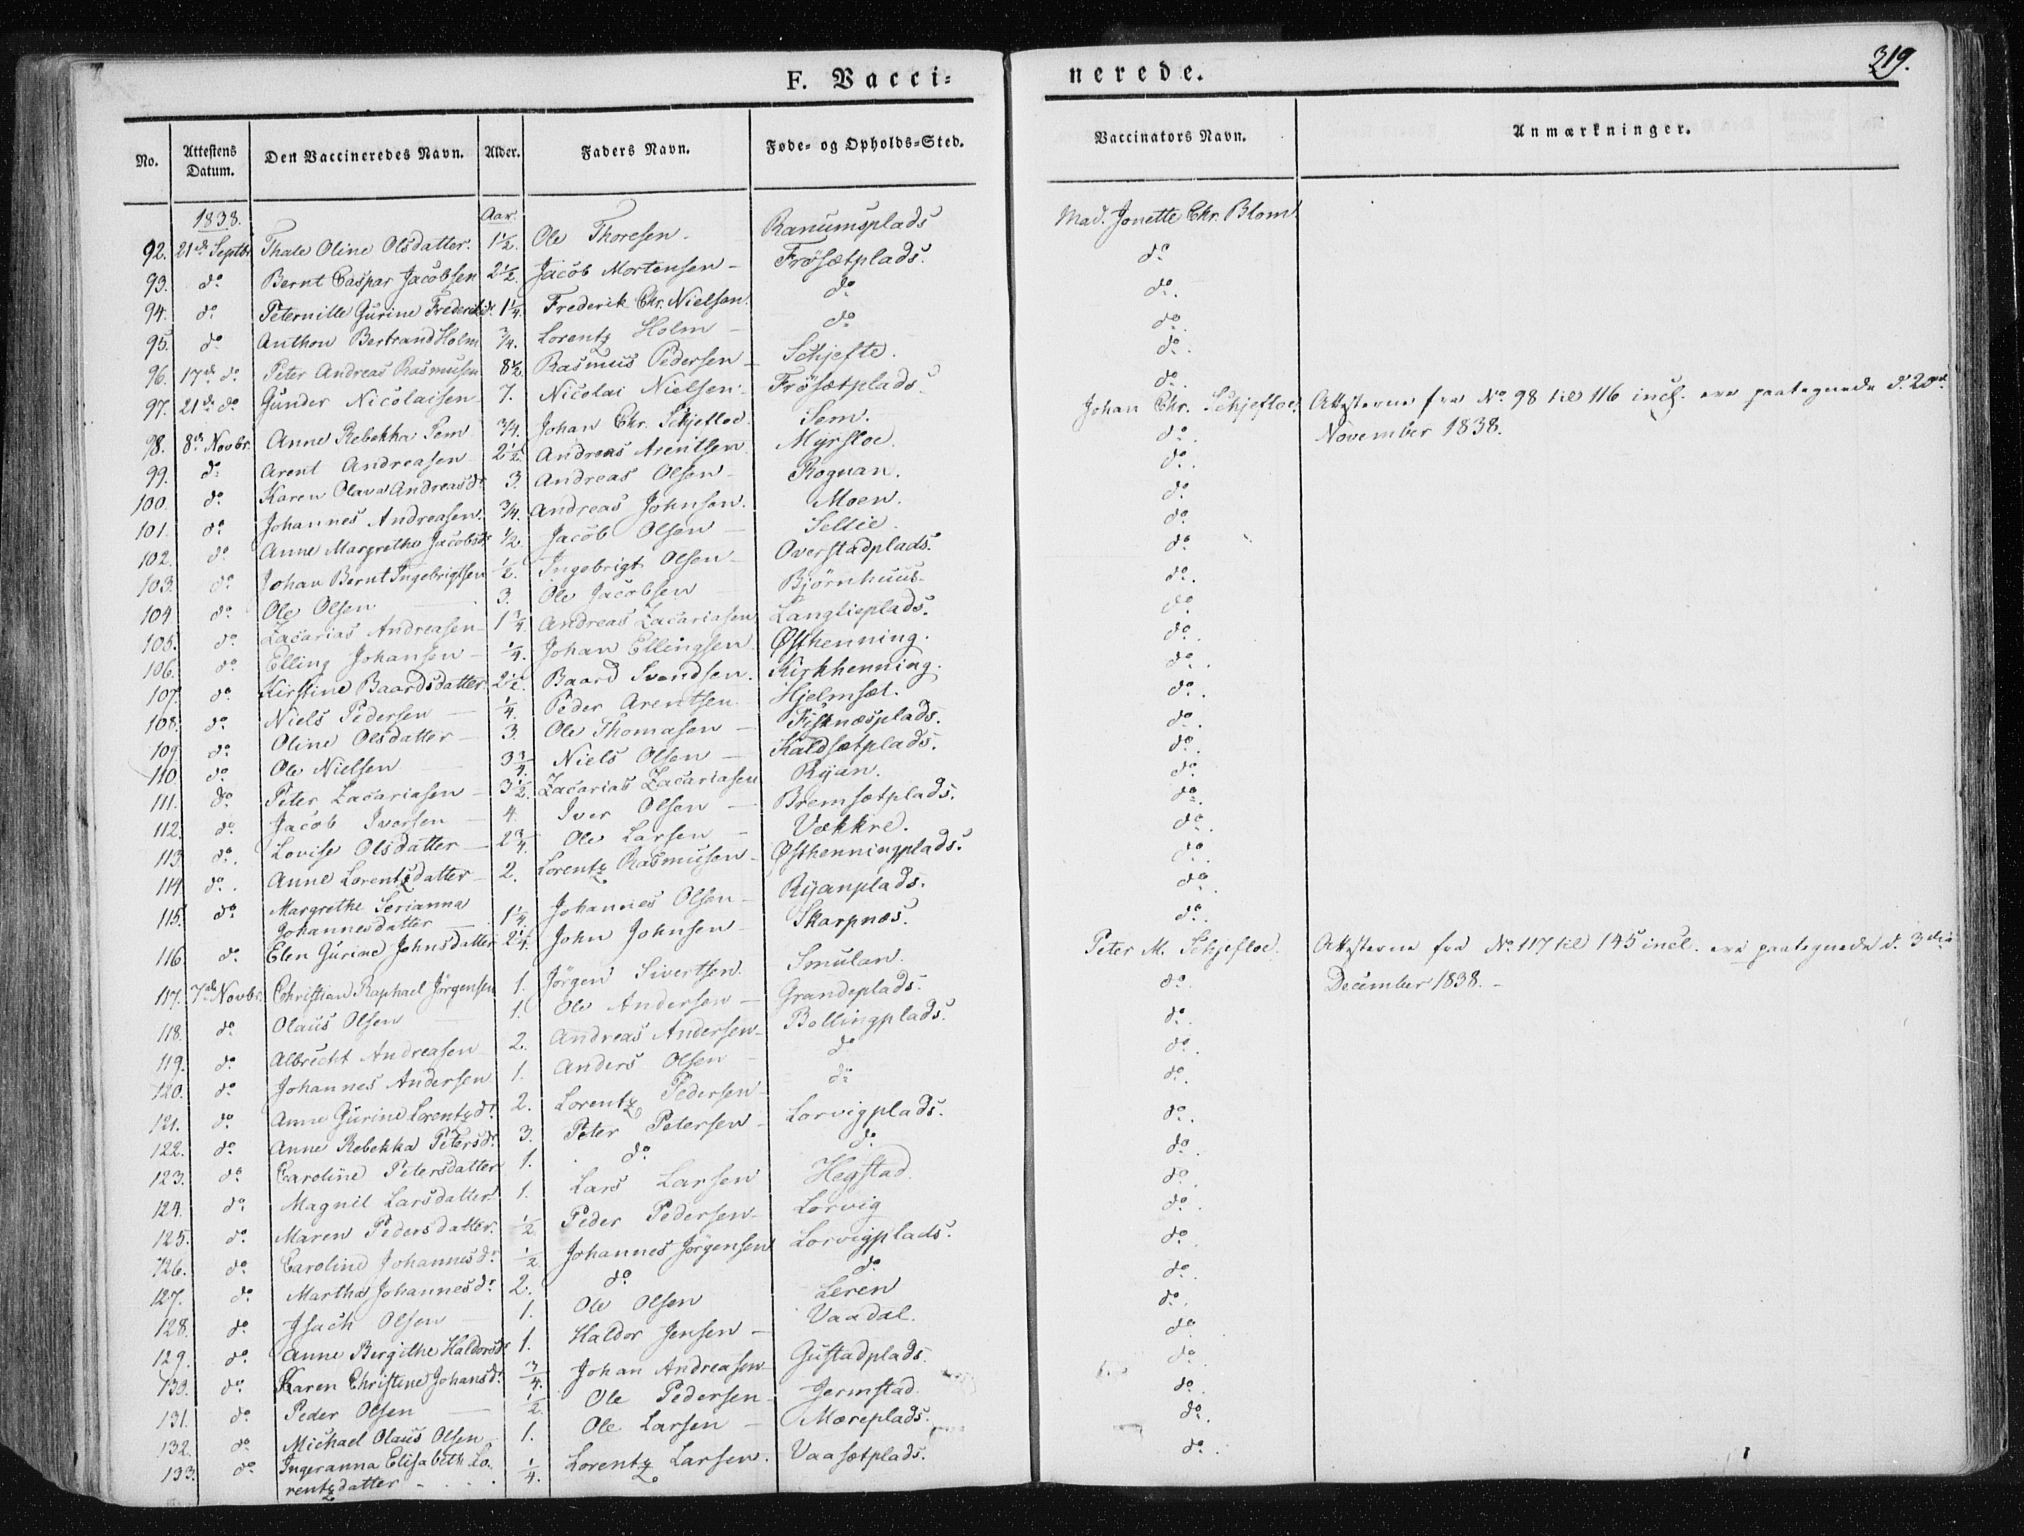 F. Vacci= nerede. 319.
No. Attestens Datum. Den Vaccineredes Navn. Alder. Faders Navn. Føde- og Opholds-Sted. Vaccinators Navn. Anmærkninger.
1838. Aar.
92. 21de Septbr. Thale Oline Olsdatter. 1½. Ole Thoresen Ranumsplads Mad. Jonette Chr. Blom
93. do Bernt Caspar Jacobsen 2½. Jacob Mortensen Frösætplads. do
94. do Peternille Gurine Frederiksd. 1¼. Frederik Chr. Nielsen. do do.
95. do Anthon Bertrand Holm ¾. Lorentz Holm do do.
96. 17de do Peter Andreas Rasmusen 8½. Rasmus Pedersen Schjefte. do.
97. 21de do Gunder Nicolaisen 7. Nicolai Nielsen Frösætplads. do.
98. 8de Novbr. Anne Rebekka Sem ¾. Johan Chr. Schjefloe. Sem. Johan Chr. Schjefloe. Attesterne fra No 98 til 116 incl. ere paategnede d. 2den
November 1838.
99. do Arent Andreasen 2½. Andreas Arentsen Myrsloe. do.
100. do Karen Olava Andreasdr 3. Andreas Olsen Rognan. do.
101. do Johannes Andreasen. ¾. Andreas Johnsen. Moen. do.
102. do Anne Margrethe Jacobsdr ½. Jacob Olsen Sellie. do.
103. do Johan Bernt Ingebrigtsen ½. Ingebrigt Olsen Overstadplads. do.
104 do Ole Olsen 3. Ole Jacobsen Björnhuus do.
105. do Zacarias Andreasen 1¾ Andreas Zacariasen Langlieplads. do
106. do Elling Johansen ¼. Johan Ellingsen. Østhenning. do.
107. do Kirstine Baardsdatter 2½. Baard Svendsen. Kirkhenning. do.
108. do Niels Pedersen ¼. Peder Arentsen Hjelmset. do.
109. do Oline Olsdatter 3. Ole Thomasen Fisknæsplads. do.
110 do Ole Nielsen 3¾. Niels Olsen Kaldsætplads. do.
111. do Peter Zacariasen 3½. Zacarias Zacariasen Ryan. do.
112. do. Jacob Iversen 4. Iver Olsen Bremsætplads. do.
113. do. Lovise Olsdatter 2¾. Ole Larsen Vekkre. do.
114 do. Anne Lorentzdatter 2. Lorentz Rasmusen Østhenningplads. do.
115. do Margrethe Serianna
Johannesdatter 1¼. Johannes Olsen Ryanplads. do.
116. do. Elen Gurine Johnsdatter 2¼. John Johnsen Skarpnæs. do.
117. 7de Novbr. Christian Raphael Jörgensen 1. Jörgen Sivertsen. Smulan. Peter M. Schjefloe. Attesterne fra No. 117 til 145 incl. ere paategnede d. 3die
December 1838.
118. do Olaus Olsen 1. Ole Andersen Grandeplads. do.
119. do Albrecht Andreasen 2. Andreas Andersen Bollingplads. do.
120. do Johannes Andersen 1. Anders Olsen do do.
121. do Anne Gurine Lorentzdr. 2. Lorentz Pedersen do do.
122. do Anne Rebekka Petersdr 3. Peter Petersen Lorvigplads. do.
123. do Caroline Petersdatter 1. do do do.
124. do Magnil Larsdatter 1. Lars Larsen Hegstad. do.
125. do Maren Pedersdatter. ½ Peder Pedersen Lorvig do.
126. do Caroline Johannesdr ½ Johannes Jörgensen Lorvigplads. do.
127. do Martha Johannesdr 2. do do do.
128. do Isach Olsen 1. Ole Olsen Leren do.
129. do. Anne Birgithe Haldorsdr 1. Haldor Jensen Vaadal. do.
130. do. Karen Christine Johansdr. ¾. Johan Andreasen Gustadplads. do.
131. do Peder Olsen ½. Ole Pedersen Jermstad. do.
132. do Michael Olaus Olsen 1. Ole Larsen Mæreplads. do.
133. do Ingeranna Elisabeth Lo-
rentzdatter ¼. Lorentz Larsen. Vaasætplads. do.